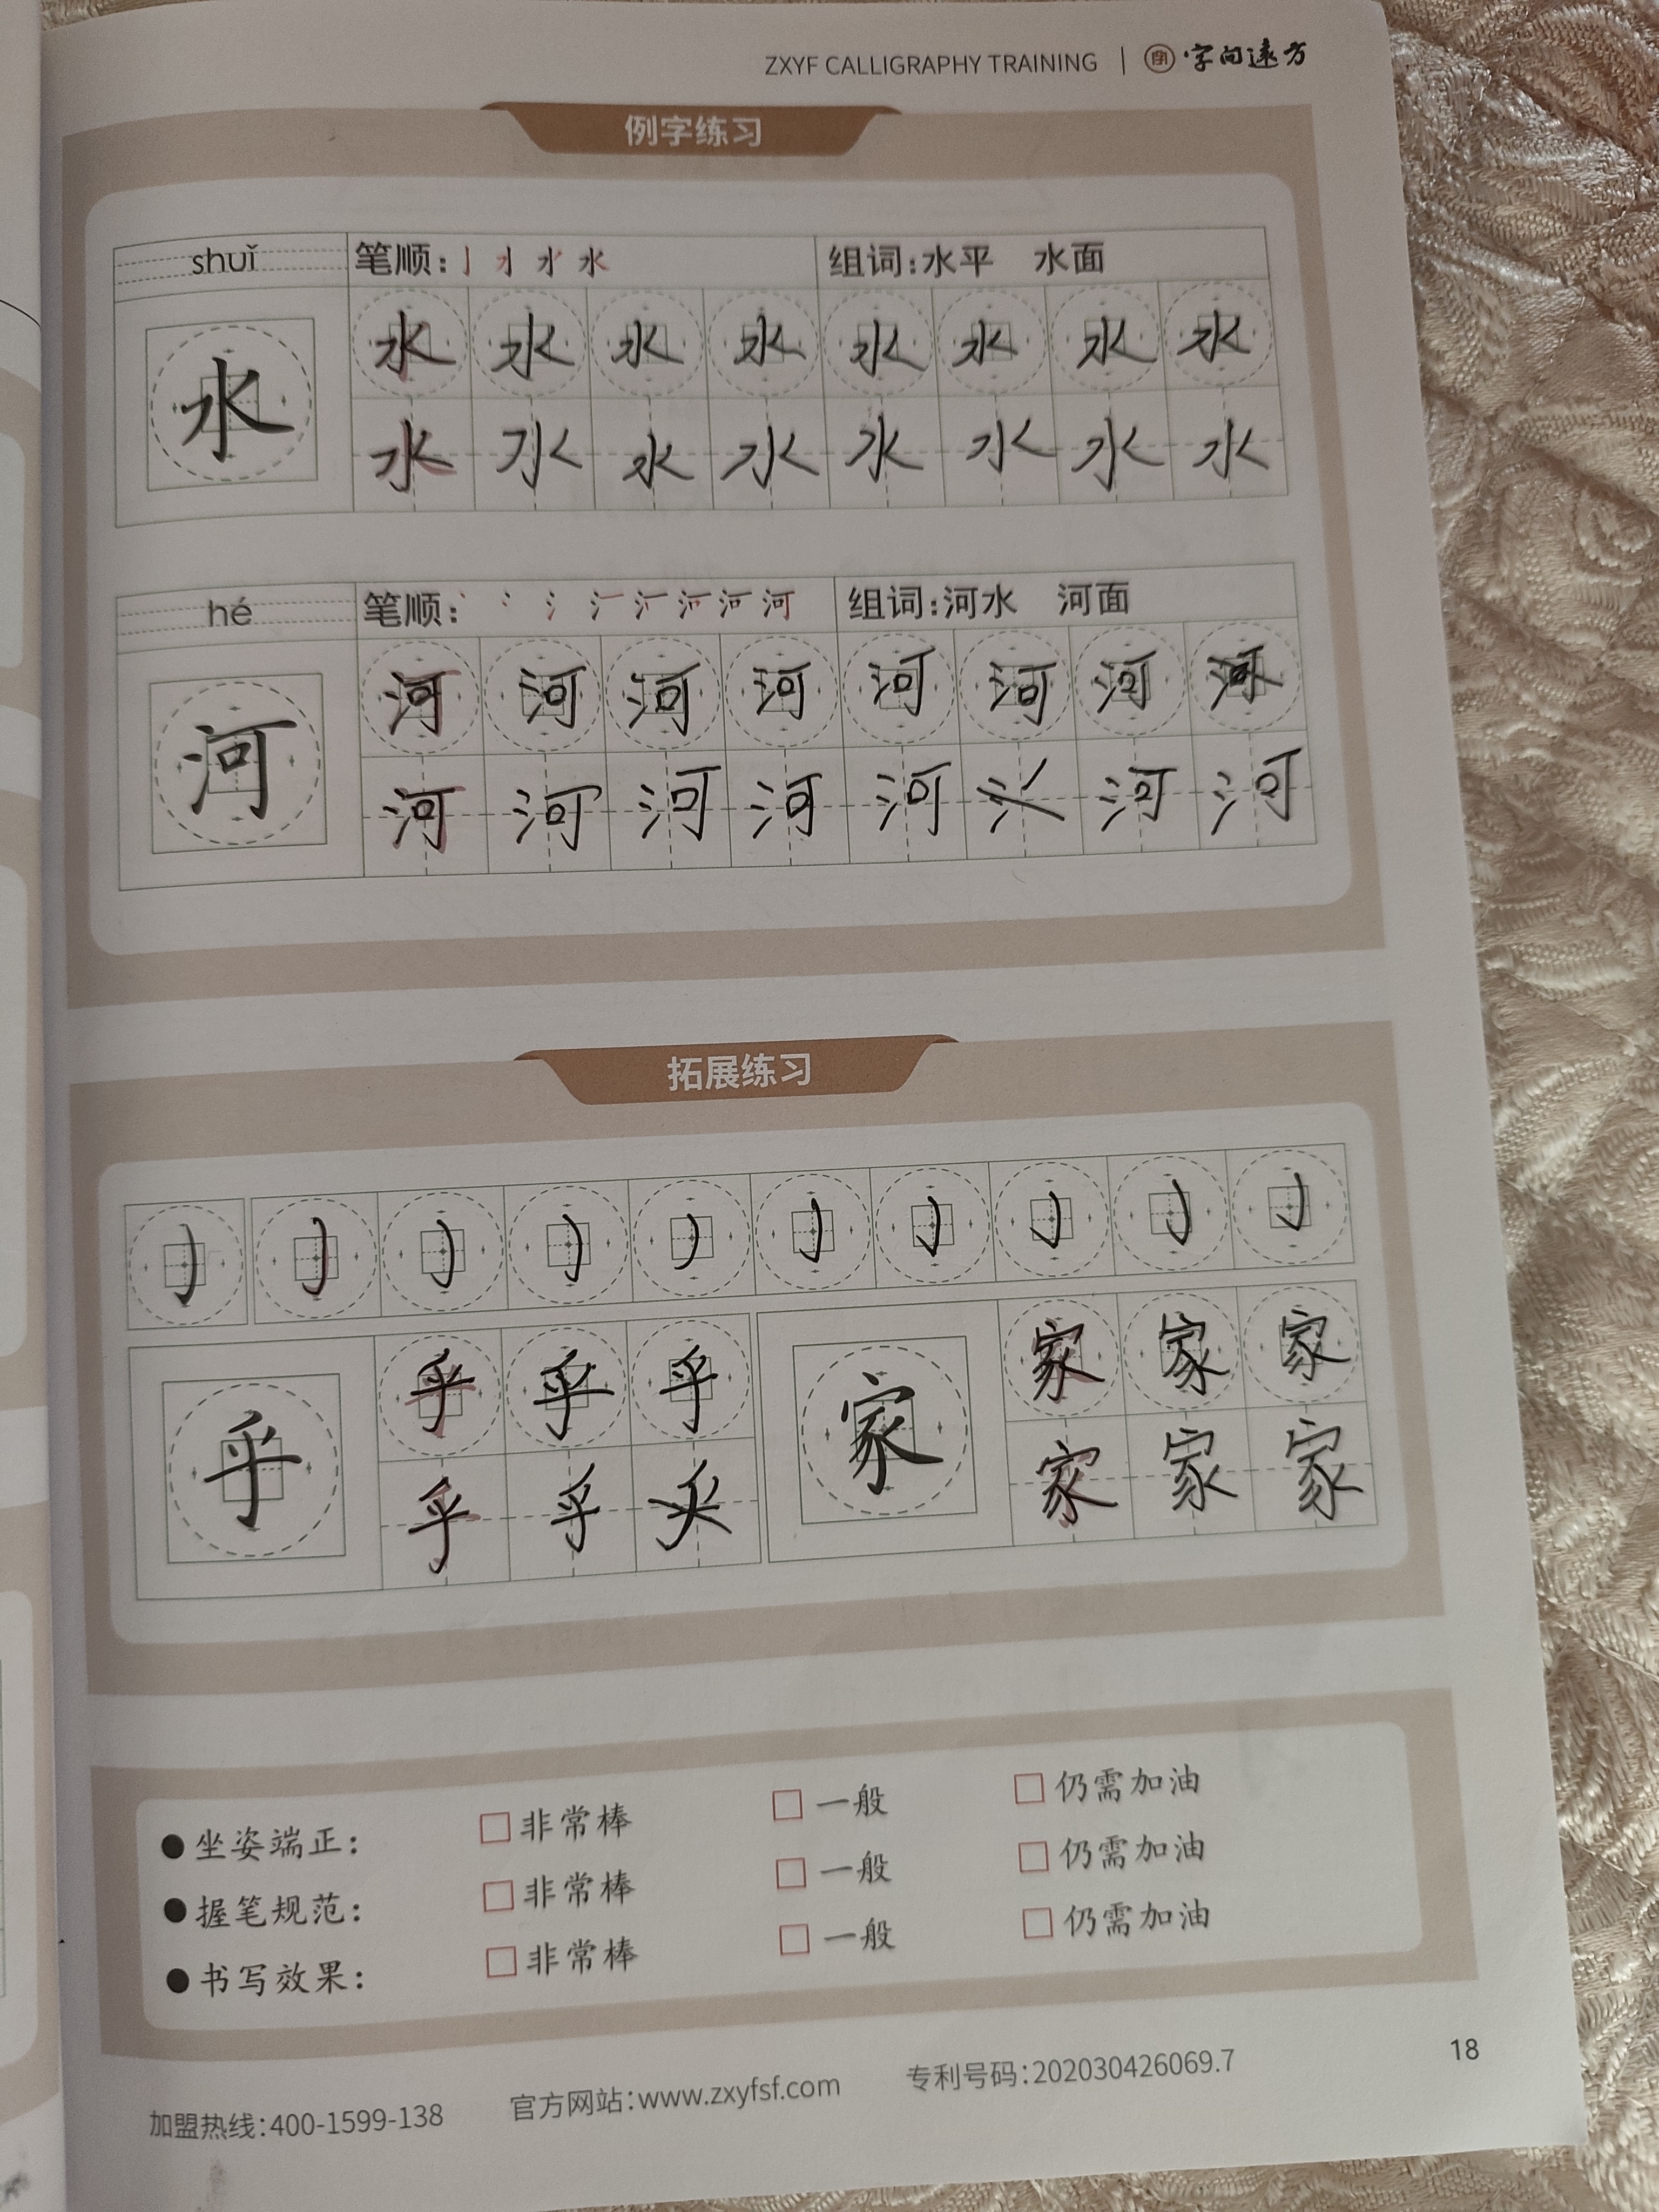 ZXYF CALLIGRAPHY TRAINING | 字向远方
例字练习
shuǐ 笔顺: 水 组词:水平 水面
水 水 水 水 水 水 水 水 水
水 水 水 水 水 水 水 水
hé 笔顺: 河 组词:河水 河面
河 河 河 河 河 河 河 河
河 河 河 河 河 河 河 河
拓展练习
乎 乎 乎 乎 家 家 家 家
乎 乎 家 家 家
●坐姿端正: □非常棒 □一般 □仍需加油
●握笔规范: □非常棒 □一般 □仍需加油
●书写效果: □非常棒 □一般 □仍需加油
加盟热线:400-1599-138 官方网站:www.zxyfsf.com 专利号码:202030426069.7
18